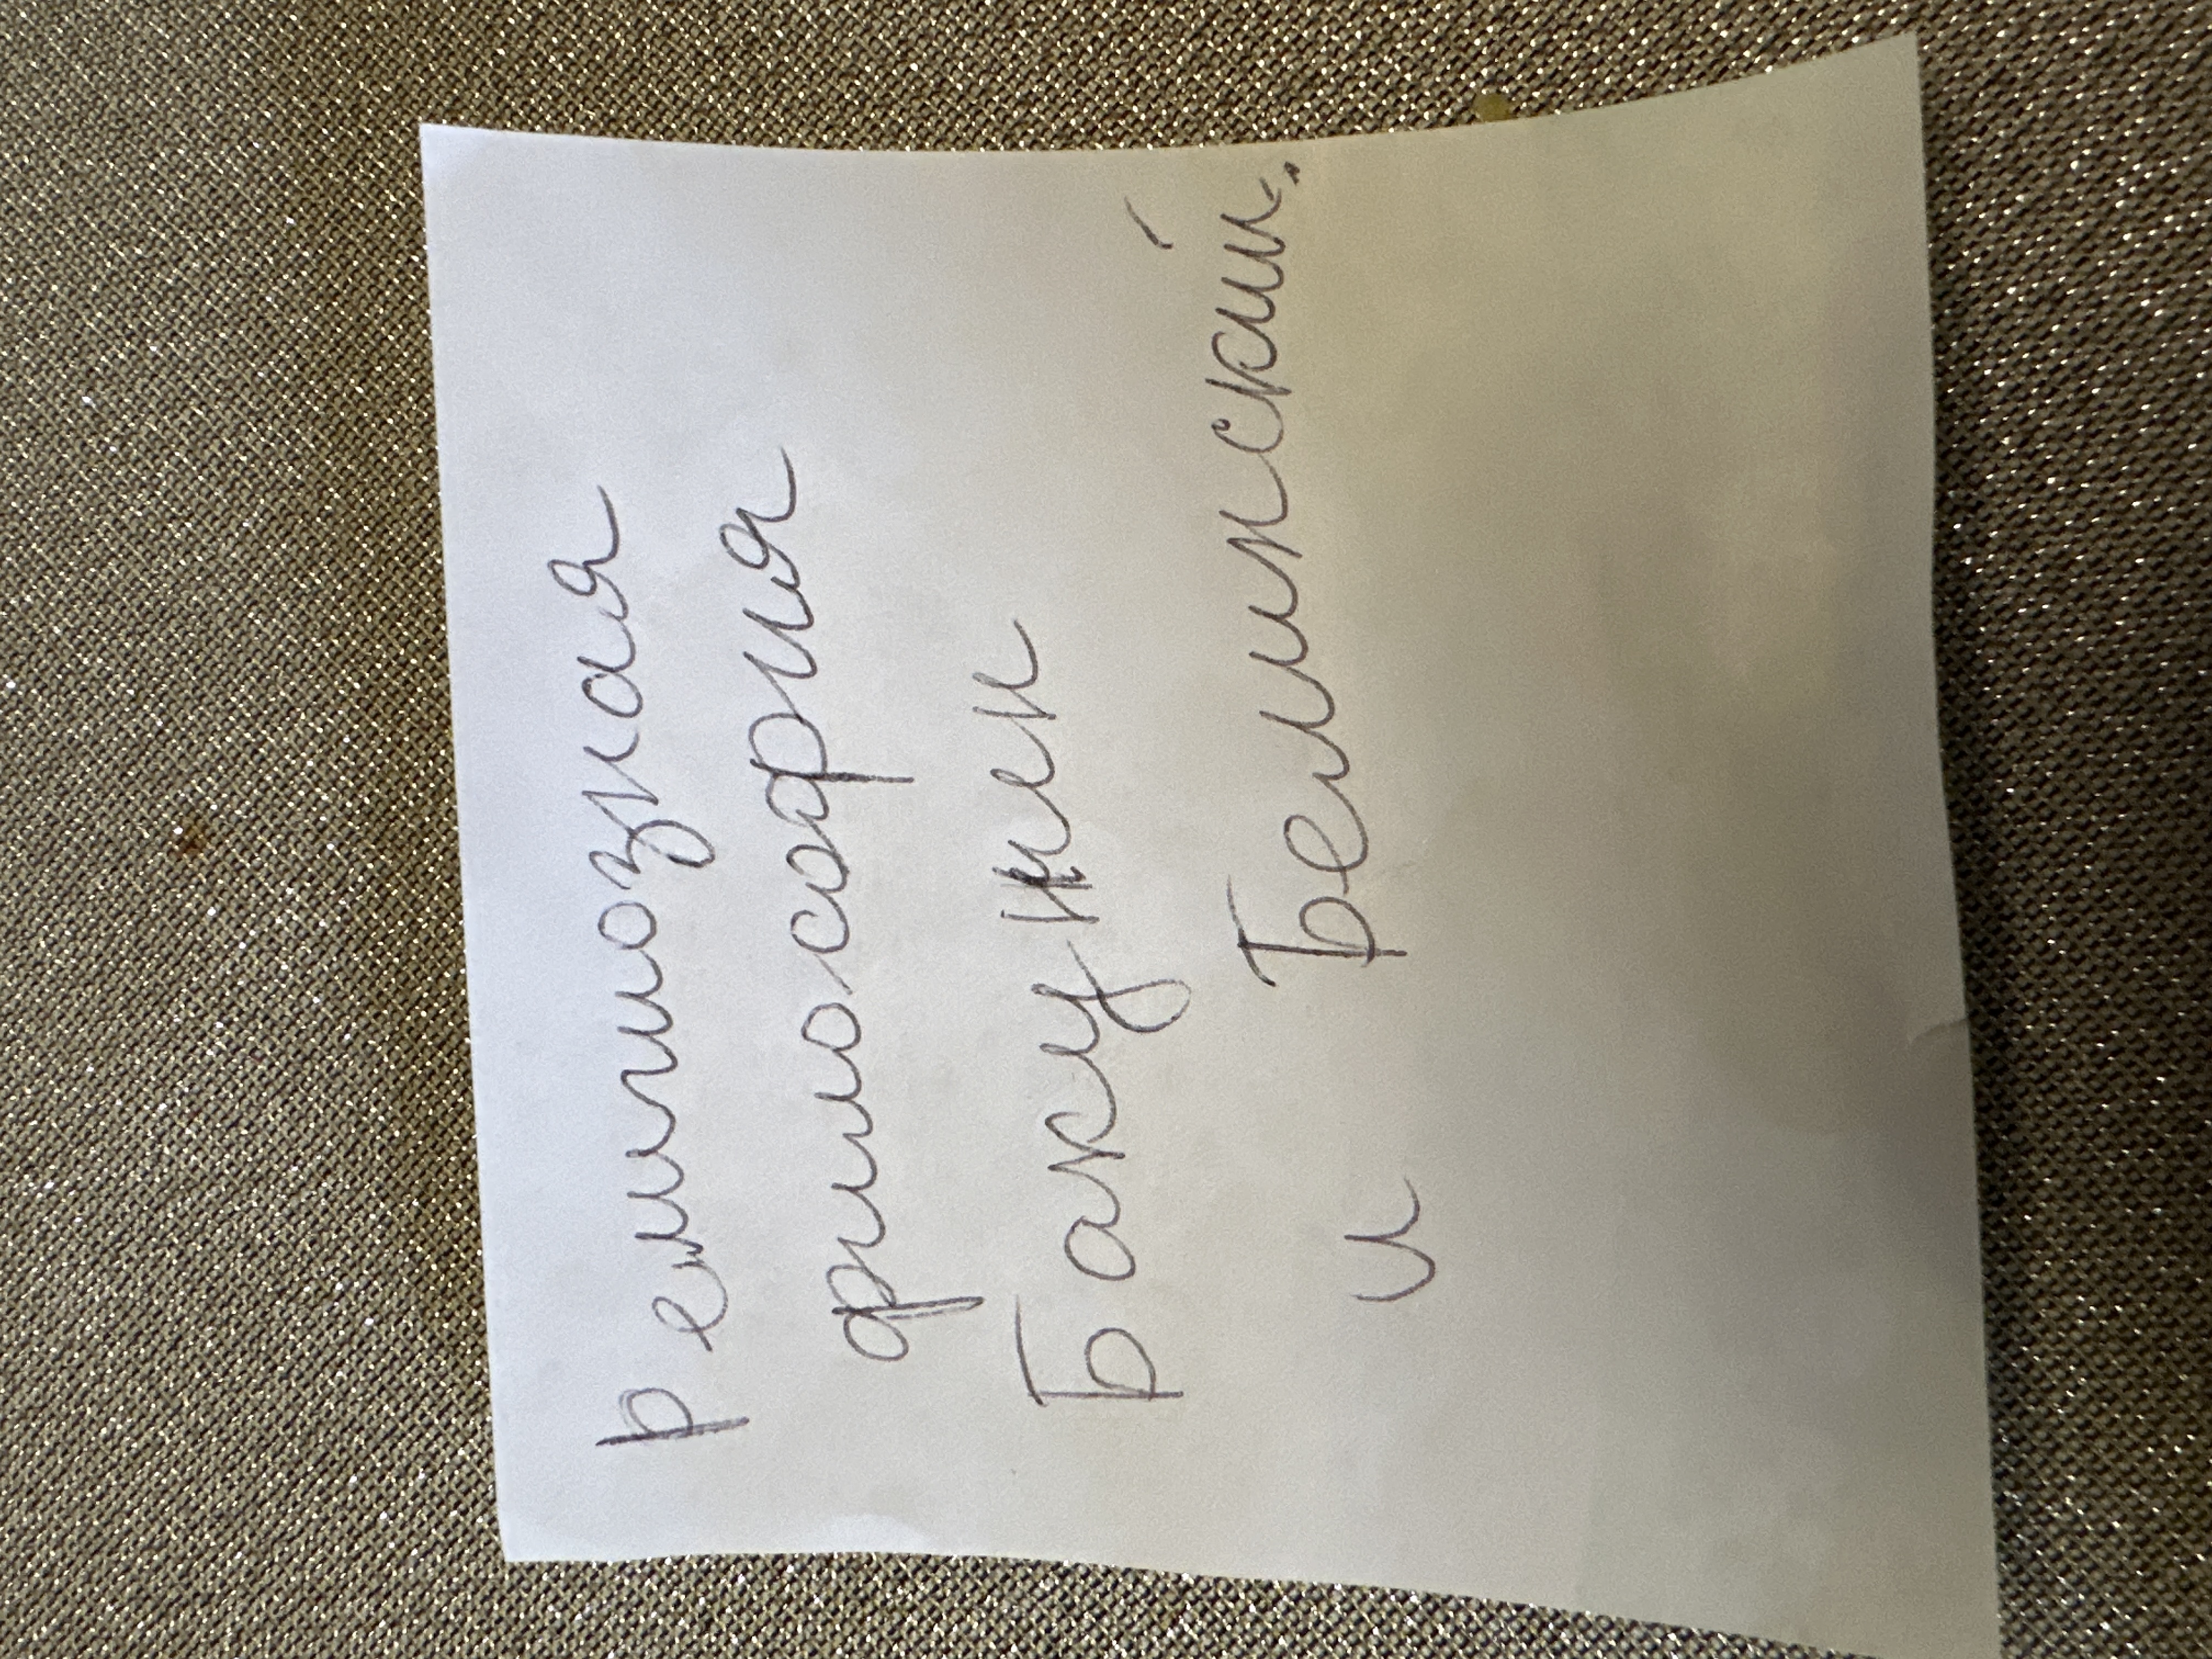 религиозная
философия
Бакунин
и Белинский.